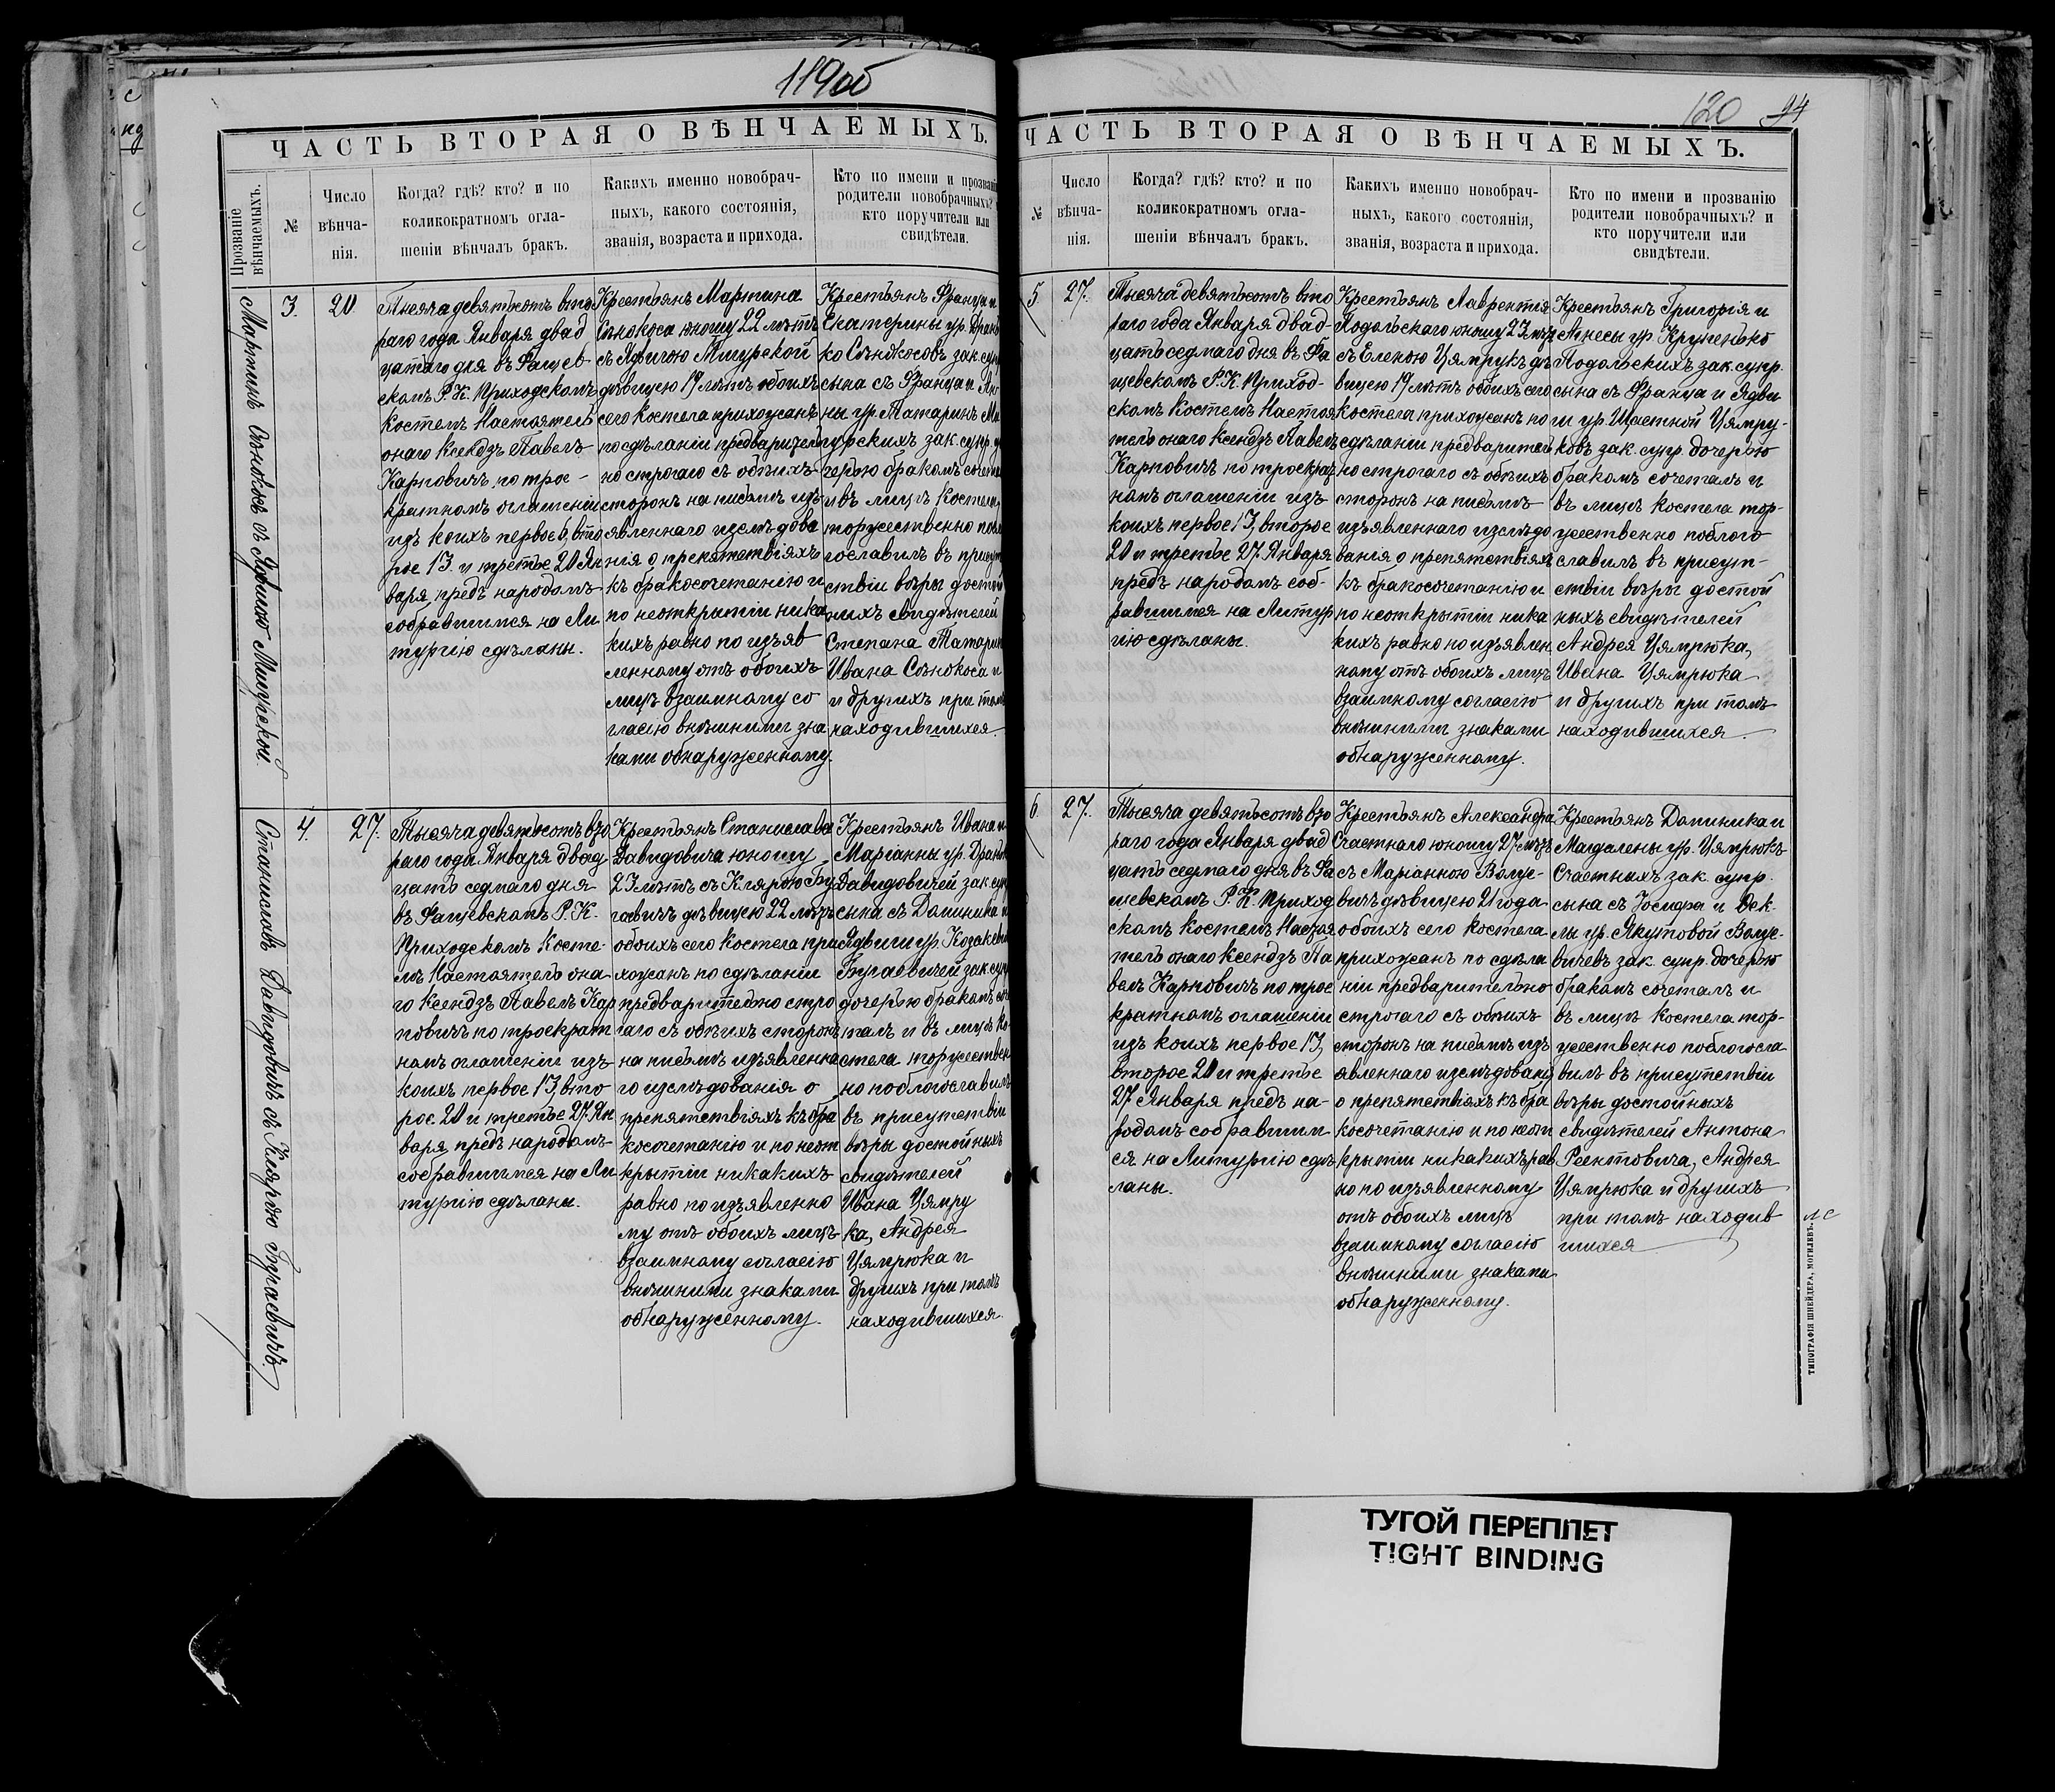 119об
ЧАСТЬ ВТОРАЯ О ВѢНЧАЕМЫХЪ.
Прозваніе вѣнчаемыхъ.
№
Число вѣнча-
нія.
Когда? гдѣ? кто? и по
коликократномъ огла-
шеніи вѣнчалъ бракъ.
Какихъ именно новобрач-
ныхъ, какого состоянія,
званія, возраста и прихода.
Кто по имени и прозванію
родители новобрачныхъ? и
кто поручители или
свидѣтели.
Мартинъ Сѣнокосъ съ Мигурскою.
3.
20
Тысяча девятьсотъ вто
раго года Января двад
цатаго дня въ Фащев-
скомъ Р. К. Приходскомъ
костелѣ Настоятель
онаго Ксендзъ Павелъ
Карповичъ по трое-
кратномъ оглашеніи
изъ коихъ первое 6, вто
рое 13 и третье 20 Ян
варя предъ народомъ
собравшимся на Ли
тургію сдѣланы.
Крестьянъ Мартина
Сѣнокоса юношу 22 лѣтъ
съ Мигурской
дѣвицею 19 лѣтъ обоихъ
сего костела прихожанъ
по сдѣланіи предварительно
строгаго съ обѣихъ
сторонъ на письмѣ изъ
явленнаго изслѣдова
нія о препятствіяхъ
къ бракосочетанію и
по неоткрытіи ника
кихъ равно по изъяв
ленному отъ обоихъ
лицъ взаимному со
гласію внѣшними зна
ками обнаруженному.
Крестьянъ Франца и
Екатерины ур.
Сѣнокосовъ зак. супр.
сына съ Франца и Ан
ны ур. Татаринъ Ми
гурскихъ зак. супр. до
черью бракомъ сочеталъ
и въ лицѣ костела
торжественно побла
гославилъ въ присут
ствіи вѣры достой
ныхъ свидѣтелей
Степана Татарина
Ивана Сѣнокоса и
и другихъ при томъ
находившихся.
Станиславъ Давидовичъ съ Клярою Бугаевичъ.
4.
27.
Тысяча девятьсотъ вто
раго года Января двад
цать седмаго дня
въ Фащевскомъ Р. К.
Приходскомъ Косте-
лѣ Настоятель она
го Ксендзъ Павелъ Кар
повичъ по троекрат
номъ оглашеніи изъ
коихъ первое 13, вто
рое 20 и третье 27 Ян
варя предъ народомъ
собравшимся на Ли
тургію сдѣланы.
Крестьянъ Станислава
Давидовича юношу
23 лѣтъ съ Клярою Бу
гаевичъ дѣвицею 22 лѣтъ
обоихъ сего костела при
хожанъ по сдѣланіи
предварительно стро
гаго съ обѣихъ сторонъ
на письмѣ изъявленна
го изслѣдованія о
препятствіяхъ къ бра
косочетанію и по неот
крытіи никакихъ
равно по изъявленно
му отъ обоихъ лицъ
взаимному согласію
внѣшними знаками
обнаруженному.
Крестьянъ Ивана и
Маріанны ур.
Давидовичей зак. супр
сына съ Доминика и
Ядвиги ур. Козакевичъ
Бугаевичей зак. супр
дочерью бракомъ соче
талъ и въ лицѣ ко-
стела торжествен
но поблагославилъ
въ присутствіи
вѣры достойныхъ
свидѣтелей
Ивана Цямрю
ка, Андрея
Цямрюка и
другихъ при томъ
находившихся.
120 94
ЧАСТЬ ВТОРАЯ О ВѢНЧАЕМЫХЪ.
№
Число
вѣнча-
нія.
Когда? гдѣ? кто? и по
коликократномъ огла-
шеніи вѣнчалъ бракъ.
Какихъ именно новобрач-
ныхъ, какого состоянія,
званія, возраста и прихода.
Кто по имени и прозванію
родители новобрачныхъ? и
кто поручители или
свидѣтели.
5
27.
Тысяча девятьсотъ вто
раго года Января двад-
цать седмаго дня въ Фа
щевскомъ Р. К. Приход-
скомъ Костелѣ Настоя
тель онаго Ксендзъ Павелъ
Карповичъ по троекрат
номъ оглашеніи изъ
коихъ первое 13, второе
20 и третье 27 Января
предъ народомъ соб-
равшимся на Литур
гію сдѣланы.
Крестьянъ Лаврентія
Подольскаго юношу 23 лѣтъ
съ Еленою Цямрукъ дѣ
вицею 19 лѣтъ обоихъ сего
костела прихожанъ по
сдѣланіи предваритель
но строгаго съ обѣихъ
сторонъ на письмѣ
изъявленнаго изслѣдо
ванія о препятствіяхъ
къ бракосочетанію и
по неоткрытіи ника
кихъ равно по изъявлен
ному отъ обоихъ лицъ
взаимному согласію
внѣшними знаками
обнаруженному.
Крестьянъ Григорія и
Агнесы ур.
Подольскихъ зак. супр.
сына съ Франца и Ядви
ги ур. Щастной Цямру-
ковъ зак. супр. дочерью
бракомъ сочеталъ и
въ лицѣ костела тор-
жественно поблаго
славилъ въ присут-
ствіи вѣры достой
ныхъ свидѣтелей
Андрея Цямрюка,
Ивана Цямрюка
и другихъ при томъ
находившихся.
6.
27.
Тысяча девятьсотъ вто
раго года Января двад
цать седмаго дня въ Фа
щевскомъ Р. К. Приход
скомъ костелѣ Настоя
тель онаго Ксендзъ Па
велъ Карповичъ по трое
кратномъ оглашеніи
изъ коихъ первое 13,
второе 20 и третье
27 Января предъ на-
родомъ собравшим
ся на Литургію сдѣ
ланы.
Крестьянъ Александра
Счастнаго юношу 27 лѣтъ
съ Маріанною Волус-
вичъ дѣвицею 21 года
обоихъ сего костела
прихожанъ по сдѣла
ніи предварительно
строгаго съ обѣихъ
сторонъ на письмѣ изъ
явленнаго изслѣдованія
о препятствіяхъ къ бра
косочетанію и по неот
крытіи никакихъ рав
но по изъявленному
отъ обоихъ лицъ
взаимному согласію
внѣшними знаками
обнаруженному.
Крестьянъ Доминика и
Магдалены ур. Цямрюкъ
Счастныхъ зак. супр.
сына съ Іосифа и Фек
лы ур. Якутовой Волус-
вичевъ зак. супр. дочерью
бракомъ сочеталъ и
въ лицѣ костела тор-
жественно поблагосла
вилъ въ присутствіи
вѣры достойныхъ
свидѣтелей Антона
Реентовича, Андрея
Цямрюка и другихъ
при томъ находив
шихся
ТИПОГРАФІЯ ШНЕЙДЕРА, МОГИЛЕВЪ.
ТУГОЙ ПЕРЕПЛЕТ
TIGHT BINDING